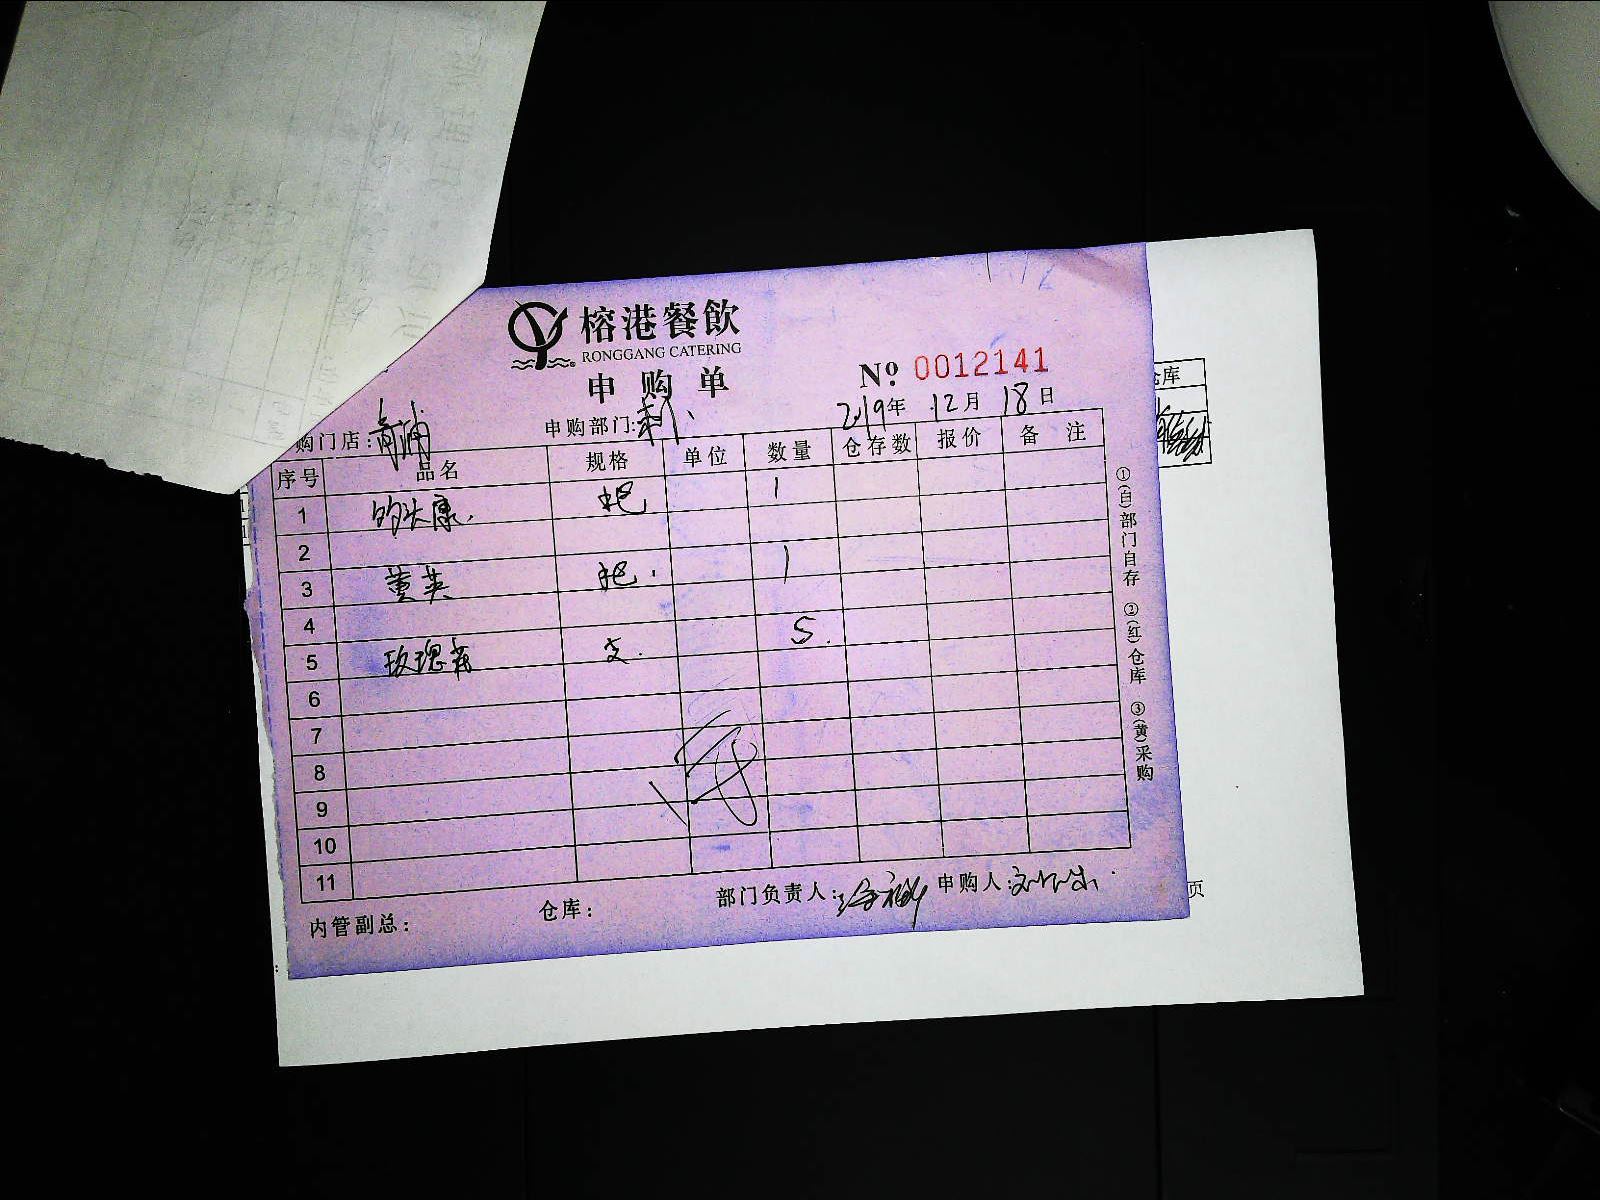 榕港餐飲
RONGGANG CATERING
申购单
No 0012141
购门店: 青浦
申购部门:
2019年 12月 18日
序号 品名 规格 单位 数量 仓存数 报价 备注
1 康 把 1
2
3 黄英 把 1
4
5 玫瑰 支 5
6
7
8
9
10
11
内管副总:
仓库:
部门负责人:
申购人:
①(白)部门自存 ②(红)仓库 ③(黄)采购
仓库
页